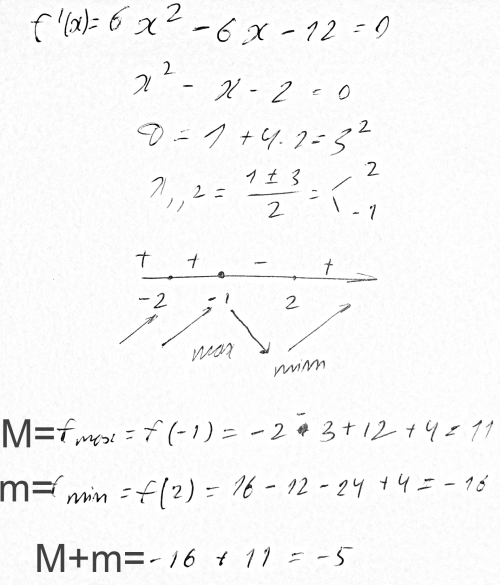 f'(x)= 6x² - 6x - 12 = 0
x² - x - 2 = 0
D = 1 + 4·2 = 3²
x₁,₂ = (1 ± 3)/2 = < 2
-1
+ + - +
-2 -1 2
max min
M= f max = f(-1) = -2 - 3 + 12 + 4 = 11
m= f min = f(2) = 16 - 12 - 24 + 4 = -16
M+m= -16 + 11 = -5